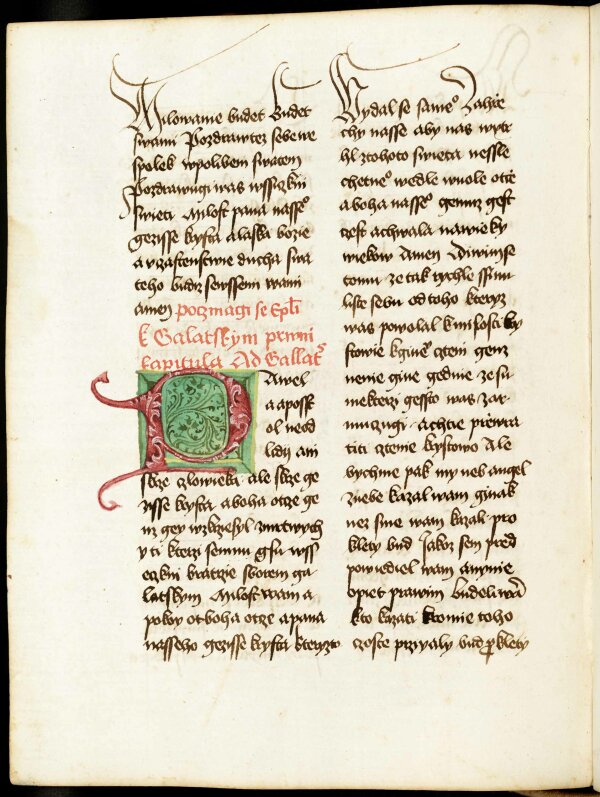 Milowanie budet budet
swami Pozdrawtez sebe we
spolek wpolibem swatem
Pozdrawugi was wssiczkni
swieti Milost pana nasseº
gezisse krysta a laska bozie
a vczastenstwie ducha swa
teho budiz sewssemi wami
amen Poczinagi se Epli
k Galatskym prwni
kapitula Ad Gallatꝭ
Pawel
a aposst
ol neod
lidij ani
skrze czlowieka ale skrze ge
zisse krysta a boha otcze ge
nz gey wzkrzesyl zmrtwych
y ti kterzi semnu gsu wss
iczkni bratrzie sborom ga
latskym Milost wam a
pokoy ot boha otcze a pana
nasseho gezisse krysta kteryzto
Wydal se sameº zahrie
chy nasse aby nas wytr
hl ztohoto swieta nessle
chetneº wedle wuole otcze
a boha nasseº gemuz gest
czest a chwala na wieky
wiekom Amen Diwimse
tomu ze tak rychle ssinu
liste sebu od toho kteryz
was powolal k milosti kry
stowie k gineº czteni genz
nenie gine gedine ze su
niekterzi gessto was zar
muczugi a chtie przewra
titi cztenie krystowo Ale
bychme pak my neb angel
znebe kazal wam ginak
nez sme wam kazali pro
klety bud Jakoz sem pred
powiediel wam a nynie
opiet prawim budeli wam
kto kazati kromie toho
czoste przigaly bud ꝓklety